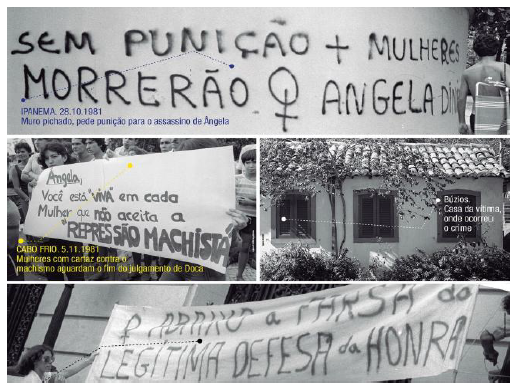 SEM PUNIÇÃO + MULHERES
MORRERÃO ♀ ANGELA
IPANEMA, 28.10.1981
Muro pichado, pede punição para o assassino de Ângela
Angela,
Você está "VIVA" em cada
Mulher que não aceita a
"REPRESSÃO MACHISTA"
CABO FRIO. 5.11.1981
Mulheres com cartaz contra o
machismo aguardam o fim do julgamento de Doca
Búzios.
Casa da vítima,
onde ocorreu
o crime
ABAIXO a FARSA da
LEGITIMA DEFESA da HONRA